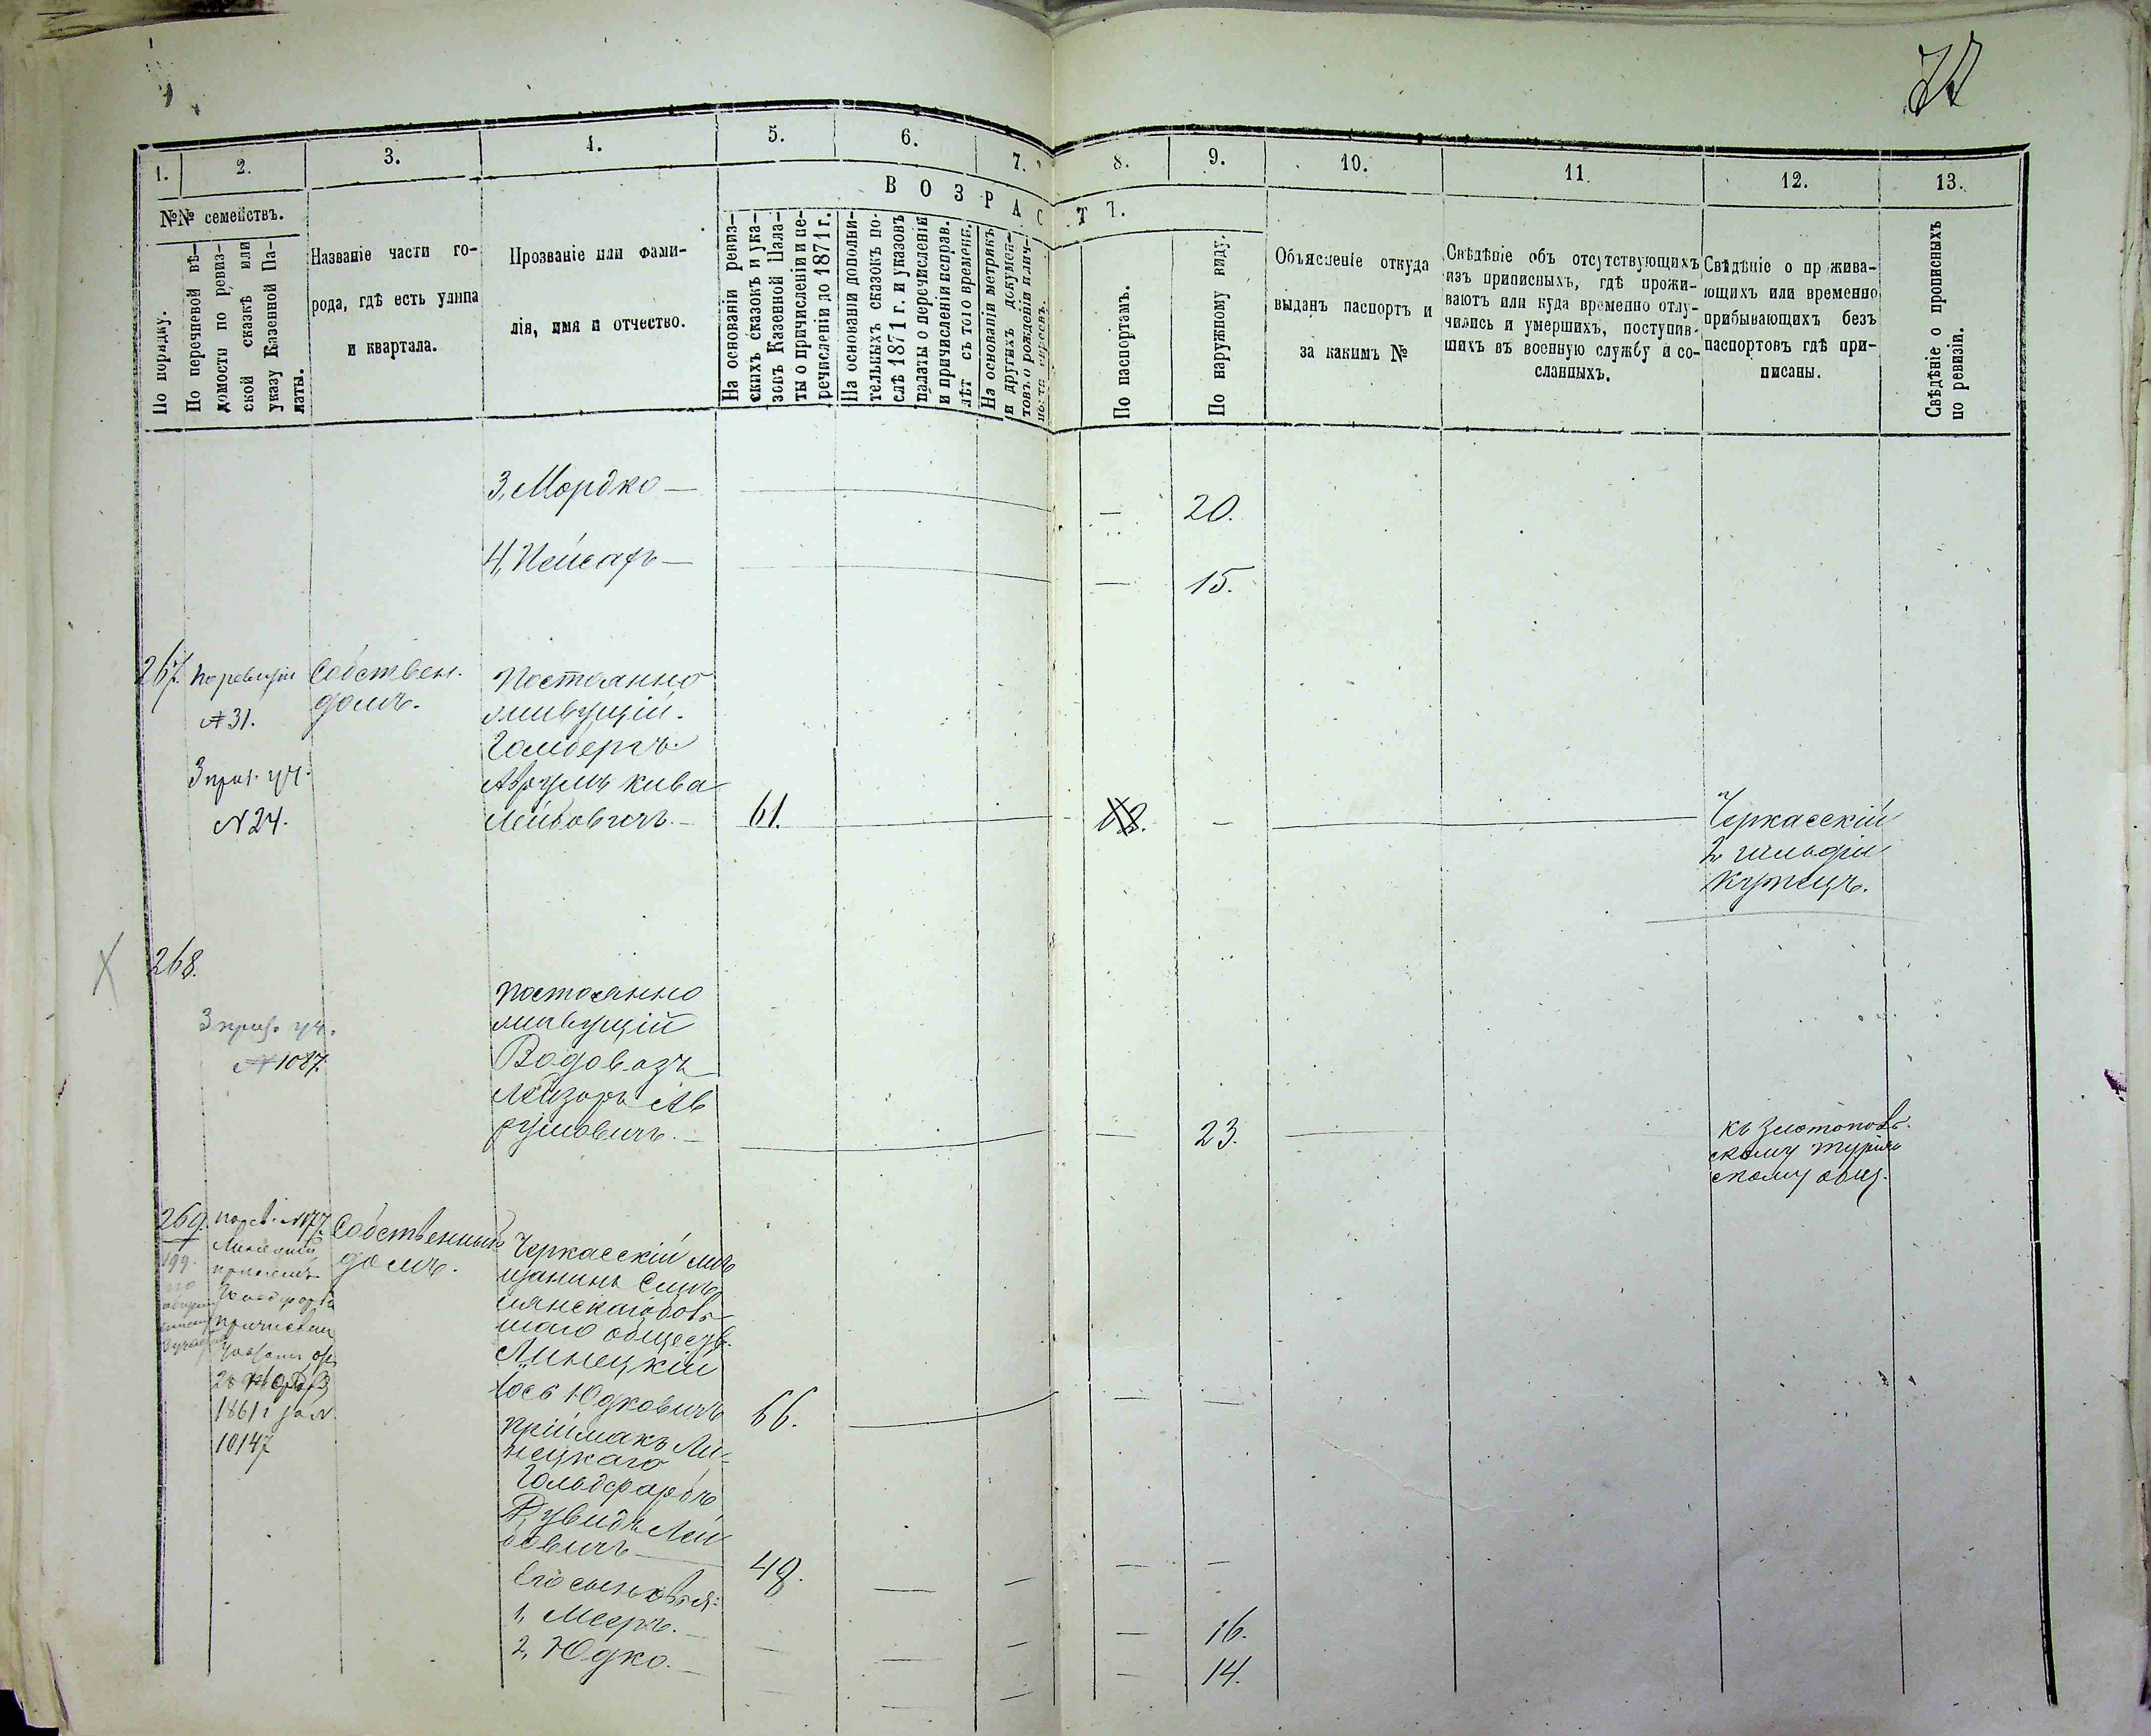 1.
2.
3.
4.
5.
6.
7.
8.
9.
10.
11.
12.
13.
№№ семействъ.
По порядку.
По перечневой вѣ-
домости по ревиз-
ской сказкѣ или
указу Казенной Па-
латы.
Названіе части го-
рода, гдѣ есть улица
и квартала.
Прозваніе или фами-
лія, имя и отчество.
ВОЗРАСТЪ.
На основаніи ревиз-
скихъ сказокъ и ука-
зовъ Казенной Пала-
ты о причисленіи и пе-
речисленіи до 1871 г.
На основаніи дополни-
тельныхъ сказокъ по-
слѣ 1871 г. и указовъ
палаты о перечисленіи
и причисленіи исправ.
лѣт съ того времени.
На основаніи метрикъ
и другихъ докумен-
товъ о рожденіи и лич-
ности евреевъ.
По паспортамъ.
По наружному виду.
Объясненіе откуда
выданъ паспортъ и
за какимъ №
Свѣдѣніе объ отсутствующихъ
изъ приписныхъ, гдѣ прожи-
ваютъ или куда временно отлу-
чились и умершихъ, поступив-
шихъ въ военную службу и со-
сланныхъ.
Свѣдѣніе о прожива-
ющихъ или временно
прибывающихъ безъ
паспортовъ гдѣ при-
писаны.
Свѣдѣніе о прописныхъ
по ревизіи.
3, Мордко — 20.
4, Пейсахъ — 15.
267. По ревизіи
№ 31.
3 приз. уч.
№ 24.
Собствен.
домъ.
Постоянно
живущій.
Гамбергъ
Аврумъ Кива
Лейбовичъ. — 61.
Черкасскій
2 гильдіи
Купецъ.
268.
3 приз. уч.
№ 1087.
Постоянно
живущій
Водовозъ
Лейзоръ Ав
румовичъ. — 23.
къ Златопов.
скому
скому общ.
269.
199.
по
№ 177.
Линецкій
причислен
28
1861 г за №
10147
Собственный
домъ.
Черкасскій мѣ
щанинъ Смѣ
лянскаго
обществ.
Линецкій
Іось Юдковичъ 66.
Пріймакъ Ли-
нецкаго
Гольдфарбъ
Дувидъ Лей
бовичъ 49.
Его сыновья:
1, Мееръ. — 16.
2, Юдко. — 14.